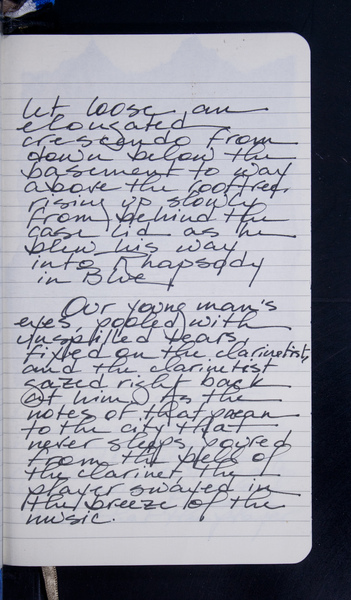 let loose an
elongated
crescendo from
down below the
basement to way
above the rooftree,
rising up slowly
from behind the
case lid as he
blew his way
into Rhapsody
in Blue.
Our young man's
eyes, pooled with
unspilled tears,
fixed on the clarinetist,
and the clarinetist
gazed right back
at him. As the
notes of that paean
to the city that
never sleeps poured
from the bell of
the clarinet, the
player swayed in
the breeze of the
music.